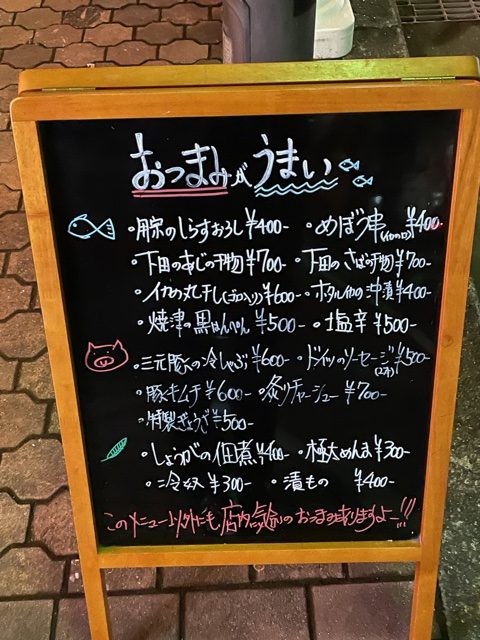 おつまみが うまい
・用宗のしらすおろし ¥400- ・めぼう串(イカの口) ¥400-
・下田のあじの干物 ¥700- ・下田のさばの干物 ¥700-
・イカの丸干し(ゴロ入り) ¥600- ・ホタルイカの沖漬 ¥400-
・焼津の黒はんぺん ¥500- ・塩辛 ¥500-
・三元豚の冷しゃぶ ¥600- ・ドイツのソーセージ(2本) ¥500-
・豚キムチ ¥600- ・炙りチャーシュー ¥700-
・特製ぎょうざ ¥500-
・しょうがの佃煮 ¥400- ・極太めんま ¥300-
・冷奴 ¥300- ・漬もの ¥400-
このメニュー以外にも店内気まぐれのおつまみありますよー!!!